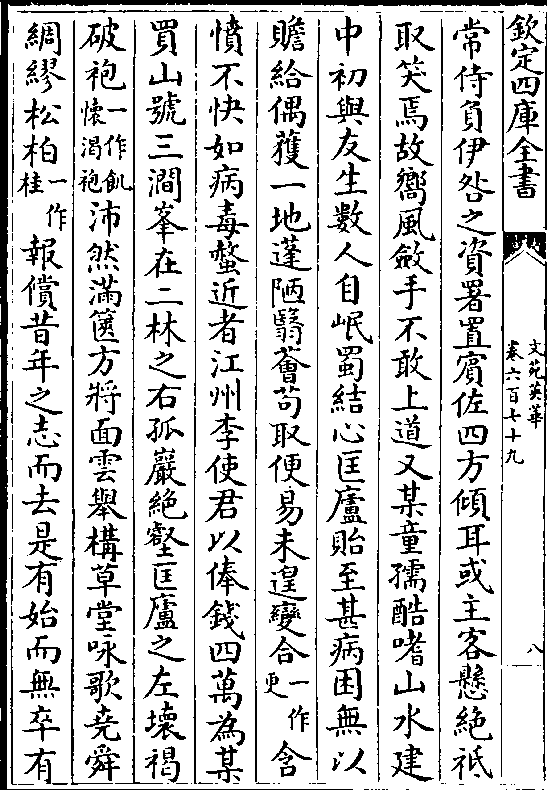 欽定四庫全書
文苑英華
卷六百七十九
八
常侍負伊咎之資署置賓佐四方傾耳或主客懸絕祗
取笑焉故嚮風斂手不敢上道又某童孺酷嗜山水建
中初與友生數人自岷蜀結心匡廬貽至甚病困無以
贍給偶獲一地蓬陋翳薈苟取便易未遑變合一作更含
憤不快如病毒螫近者江州李使君以俸錢四萬為某
買山號三澗峯在二林之右孤巖絕壑匡廬之左壞褐
破袍一作飢懷渴袍沛然滿篋方將面雲舉構草堂咏歌堯舜
綢繆松柏一作桂報償昔年之志而去是有始而無卒有